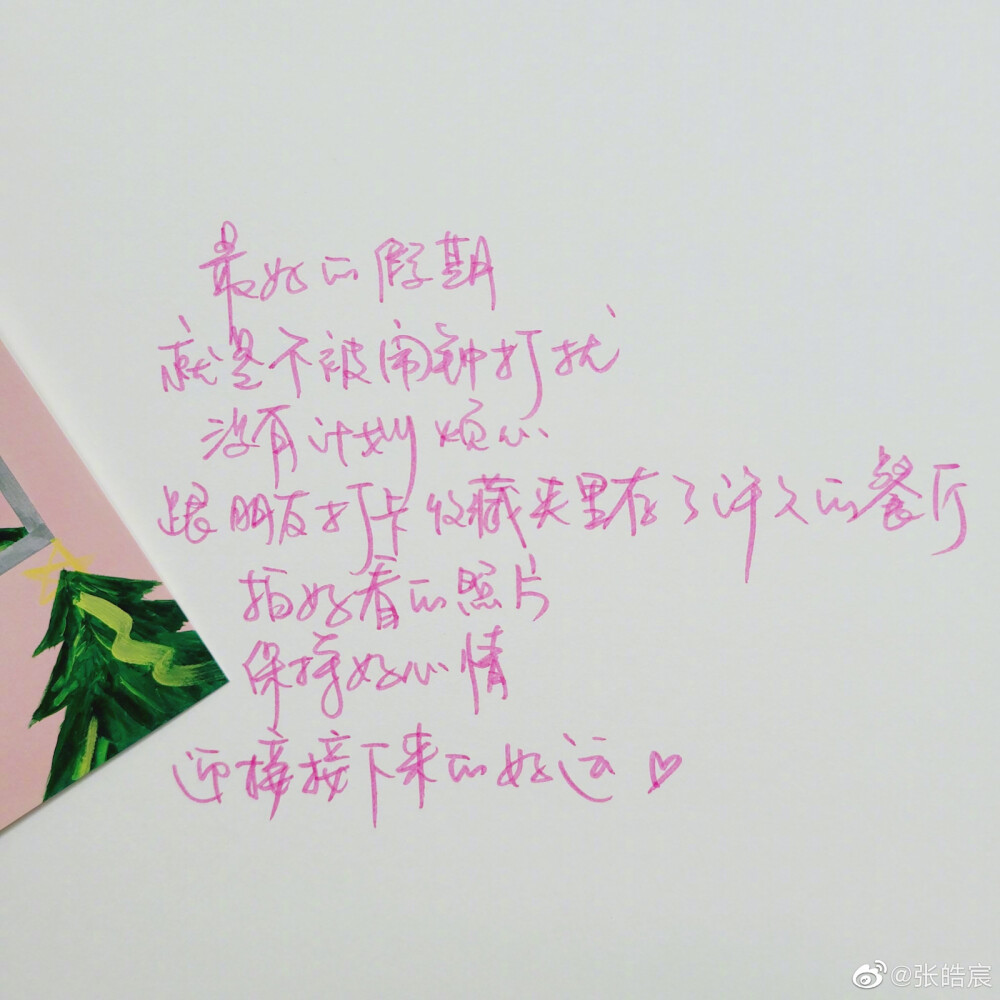 最好的假期
就是不被闹钟打扰
没有计划烦心
跟朋友打卡收藏夹里存了许久的餐厅
拍好看的照片
保持好心情
迎接接下来的好运♡
@张皓宸